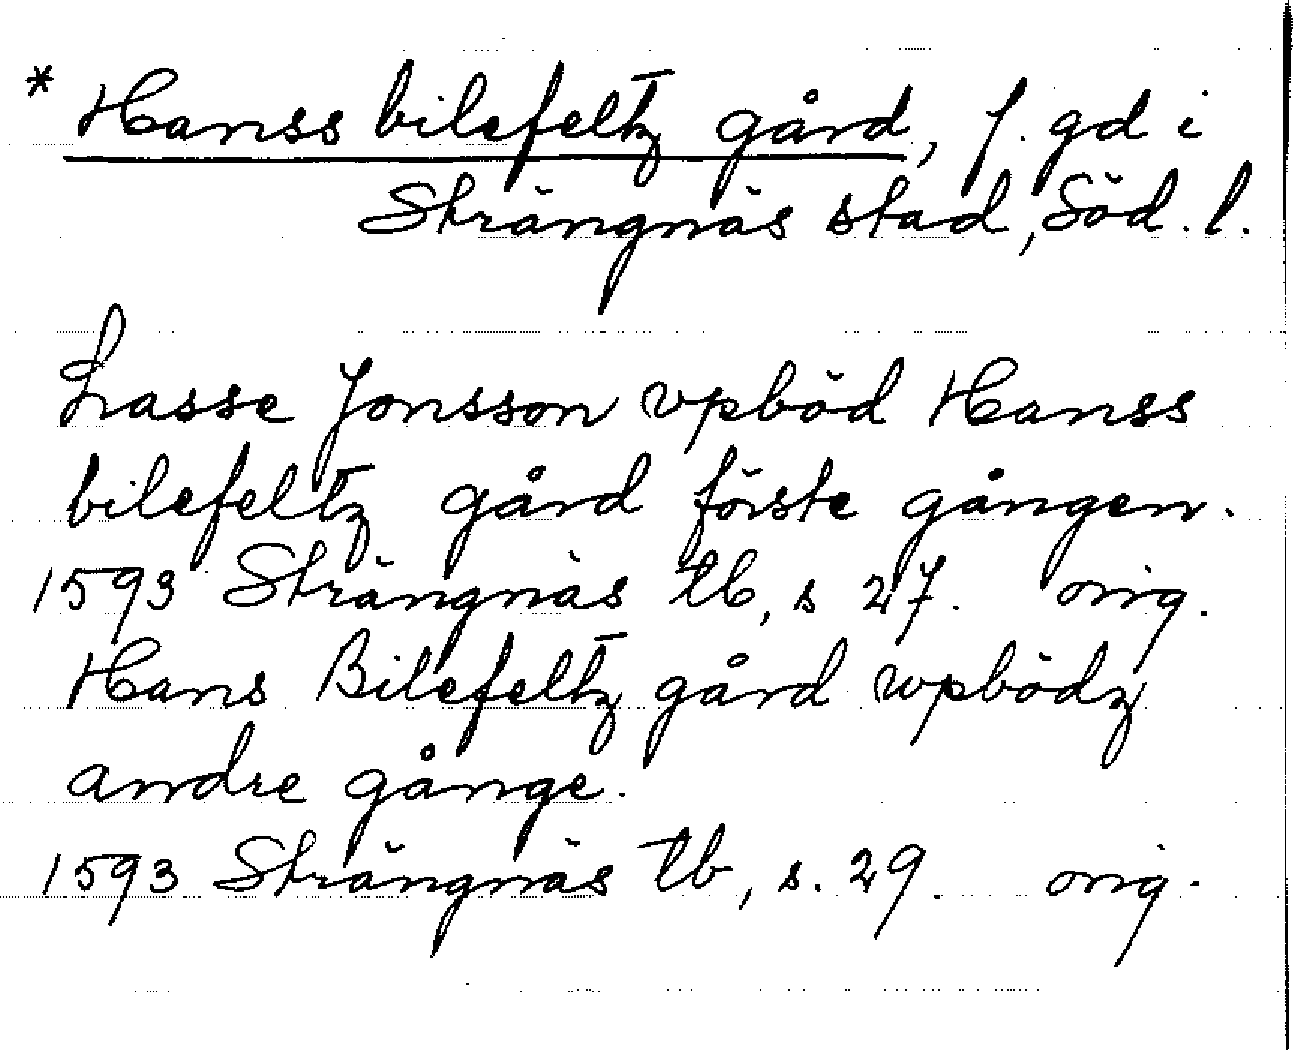 * Hanss bilefeltz gård, f. gd i
Strängnäs stad, Söd. l.
Lasse Jonsson vpböd Hanss
bilefeltz gård förste gången.
1593 Strängnäs tb, s 27. orig.
Hans Bilefeltz gård wpbödz
andre gånge.
1593 Strängnäs tb, s. 29. orig.